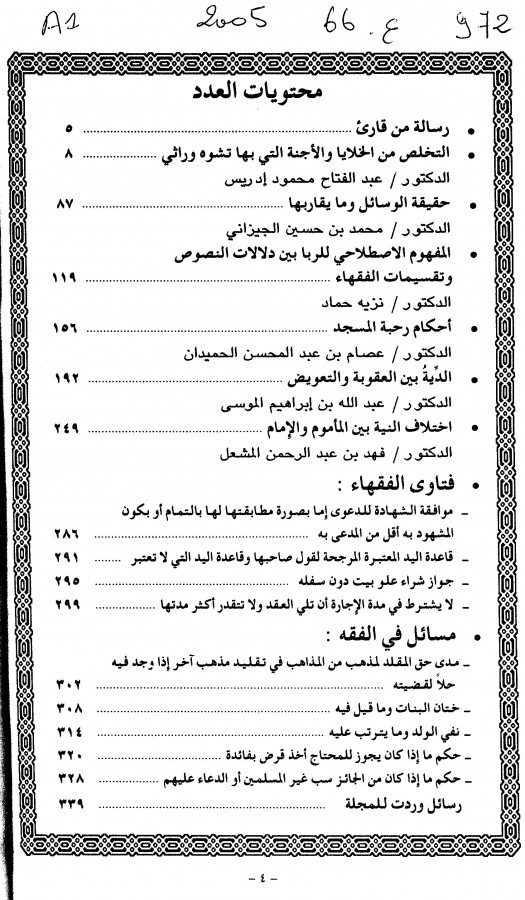 A1 2005 66 ع. 972
محتويات العدد
• رسالة من قارئ ........ ٥
• التخلص من الخلايا والأجنة التي بها تشوه وراثي ........ ٨
الدكتور / عبد الفتاح محمود إدريس
• حقيقة الوسائل وما يقاربها ........ ٨٧
الدكتور / محمد بن حسين الجيزاني
• المفهوم الاصطلاحي للربا بين دلالات النصوص
وتقسيمات الفقهاء ........ ١١٩
الدكتور / نزيه حماد
• أحكام رحبة المسجد ........ ١٥٦
الدكتور / عصام بن عبد المحسن الحميدان
• الدِّيةُ بين العقوبة والتعويض ........ ١٩٢
الدكتور / عبد الله بن إبراهيم الموسى
• اختلاف النية بين المأموم والإمام ........ ٢٤٩
الدكتور / فهد بن عبد الرحمن المشعل
• فتاوى الفقهاء :
– موافقة الشهادة للدعوى إما بصورة مطابقتها لها بالتمام أو بكون
المشهود به أقل من المدعى به ........ ٢٨٦
– قاعدة اليد المعتبرة المرجحة لقول صاحبها وقاعدة اليد التي لا تعتبر ........ ٢٩١
– جواز شراء علو بيت دون سفله ........ ٢٩٥
– لا يشترط في مدة الإجارة أن تلي العقد ولا تتقدر أكثر مدتها ........ ٢٩٩
• مسائل في الفقه :
– مدى حق المقلد لمذهب من المذاهب في تقليد مذهب آخر إذا وجد فيه
حلاً لقضيته ........ ٣٠٢
– ختان البنات وما قيل فيه ........ ٣٠٨
– نفي الولد وما يترتب عليه ........ ٣١٤
– حكم ما إذا كان يجوز للمحتاج أخذ قرض بفائدة ........ ٣٢٠
– حكم ما إذا كان من الجائز سب غير المسلمين أو الدعاء عليهم ........ ٣٢٨
رسائل وردت للمجلة ........ ٣٣٩
– ٤ –